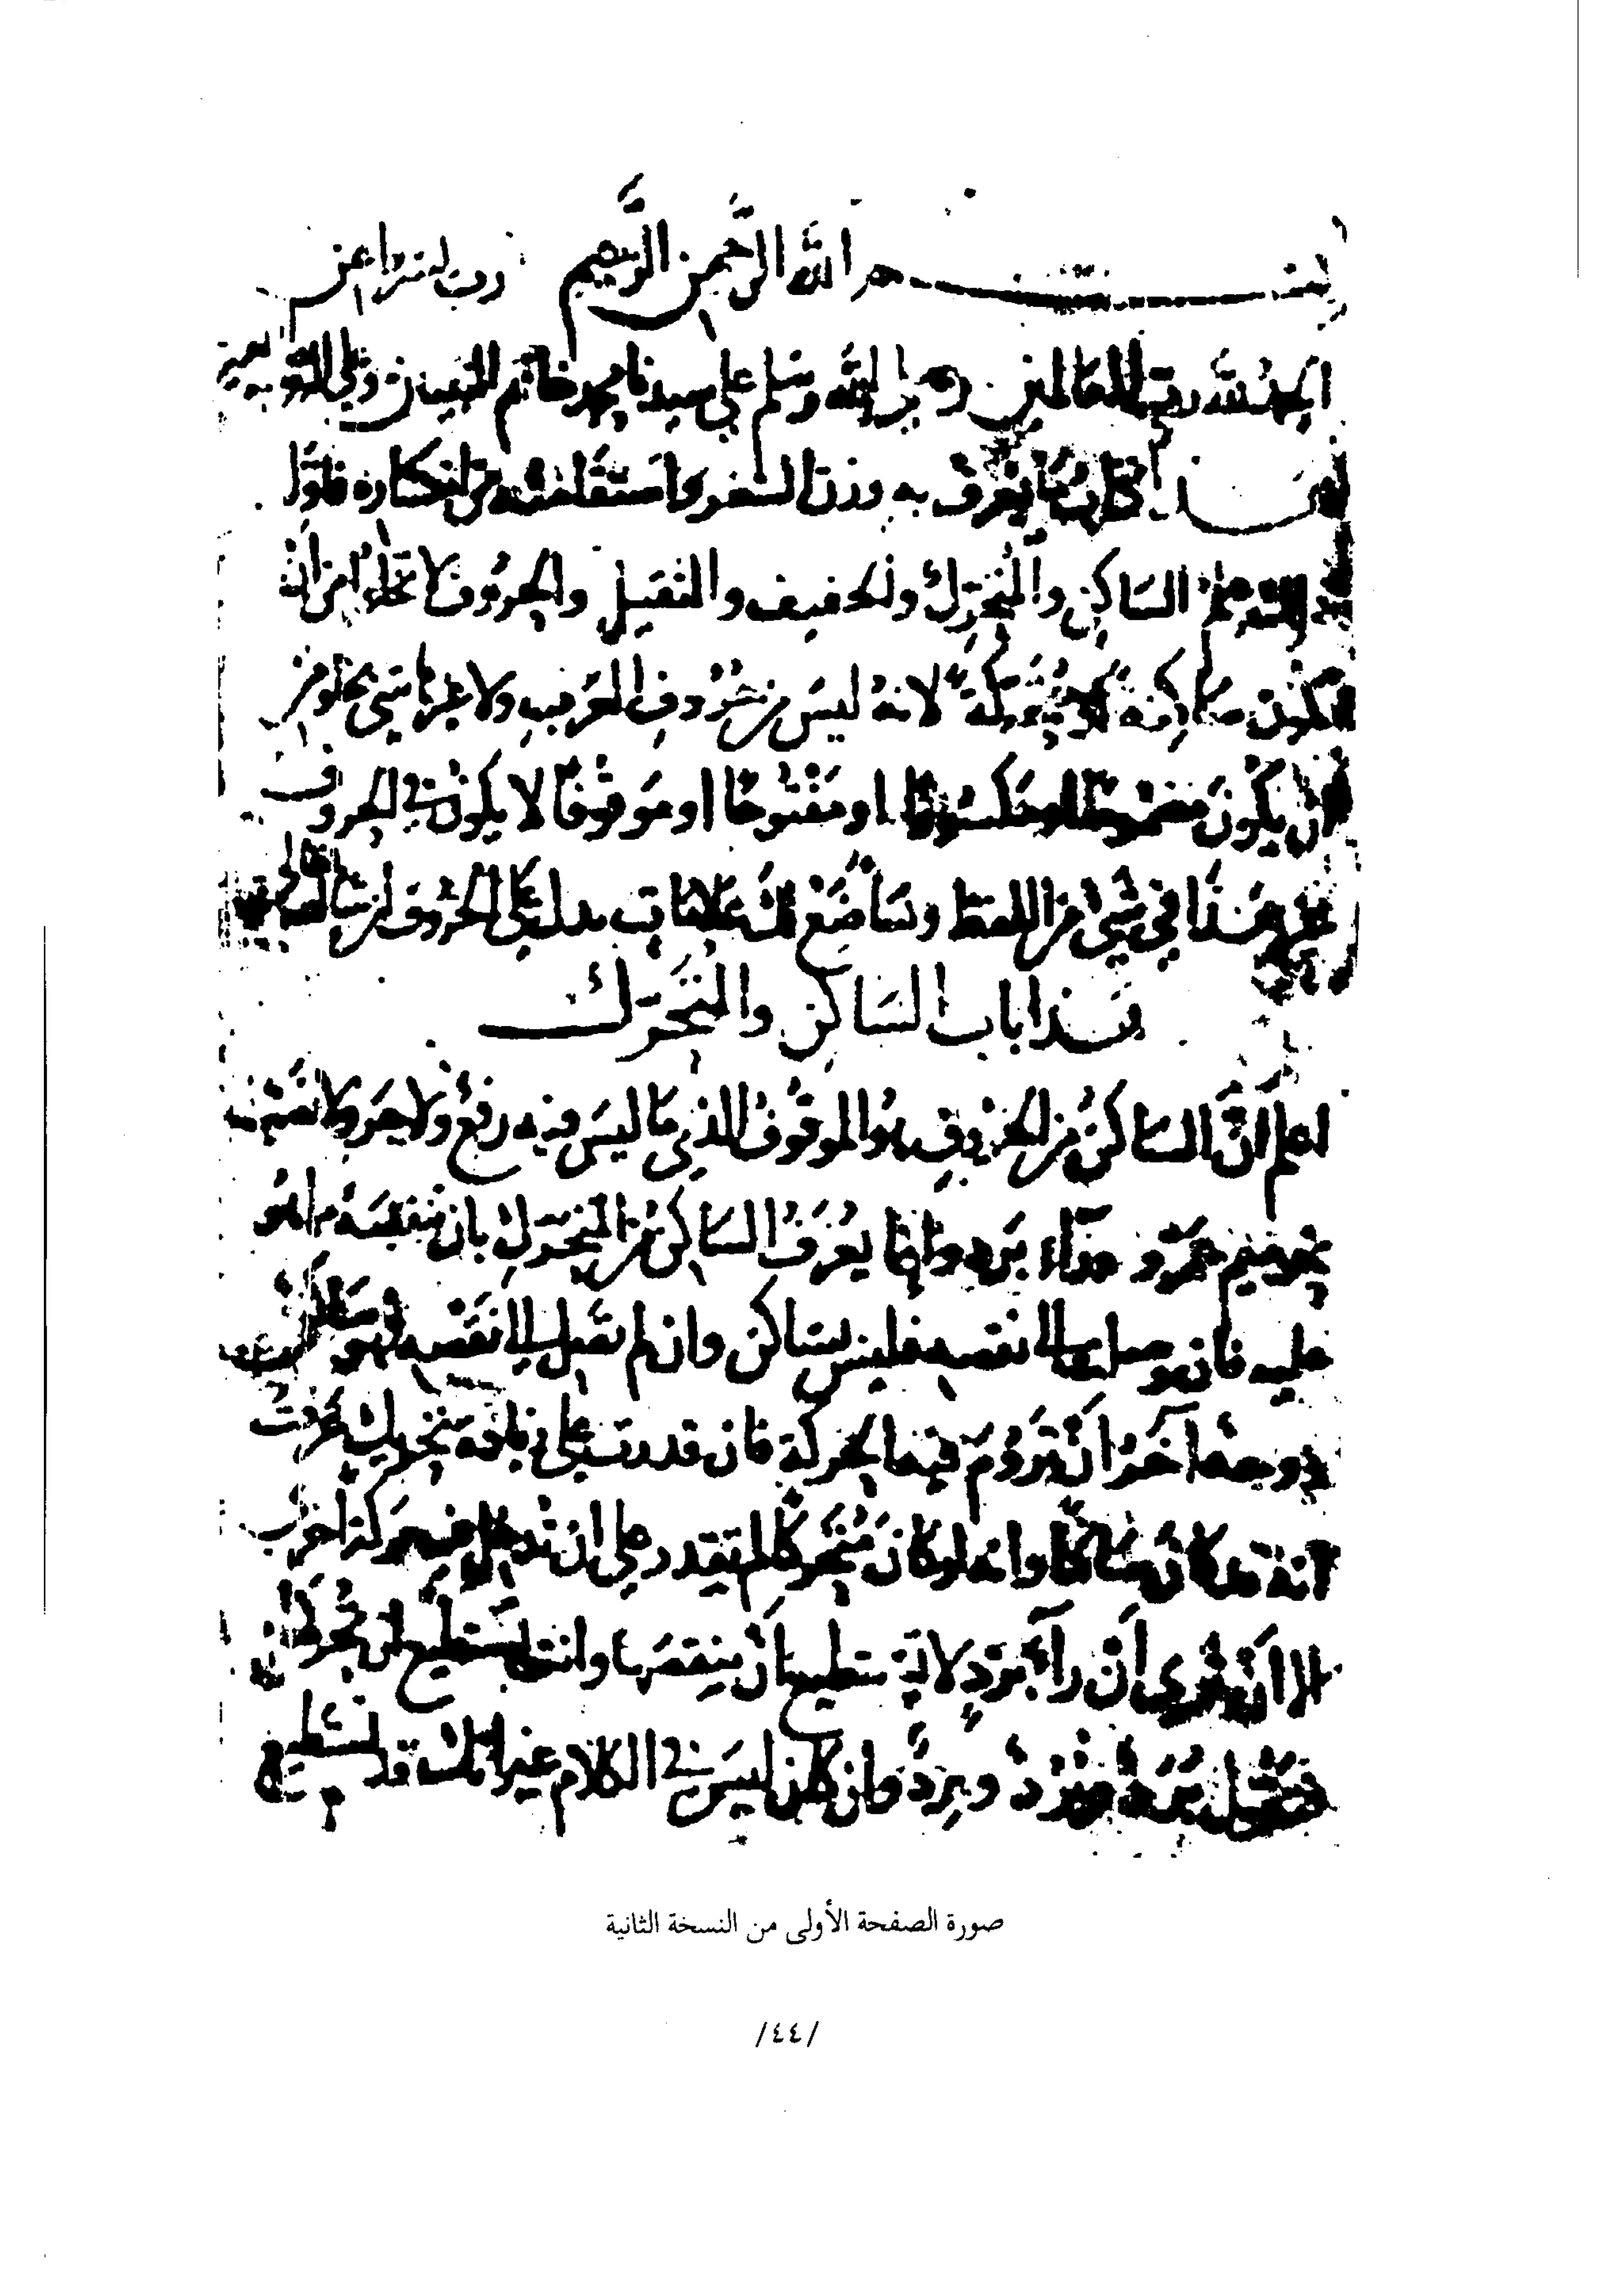 بسم الله الرحمن الرحيم رب يسر وأعن
الحمد لله رب العالمين وصلى الله وسلم على سيدنا محمد خاتم النبيين وعلى
كتاب ما يعرف به وزن الشعر واستقامته من انكساره فأول
الساكن والمتحرك والخفيف والثقيل والحروف لا تخلو من أن
تكون ساكنة أو متحركة لأنه ليس من حروف العرب ولا غيرها شيء يخلو من
أن يكون مضموما أو مكسورا أو مفتوحا أو موقوفا لا يكون في الحروف
غير هذا في شيء من اللفظ وسأضع لك علامات تدل على الحروف إن شاء الله تعالى
هذا باب الساكن والمتحرك
اعلم أن الساكن من الحروف هو الموقوف الذي ما ليس فيه رفع ولا جر ولا نصب
نحو ميم عمرو وراء برد وإنما يعرف الساكن من المتحرك بأن تنقصه مما هو
عليه فإن وصل إلى نقصه فليس بساكن وإن لم تصل إلى نقصه فهو ساكن
ووجه آخر أن تروم فيها الحركة فإن قدرت على تحريك عرفت
أنه قد كان ساكنا وأنه لو كان متحركا لم تقدر على أن تدخل فيه حركة أخرى
ألا أن ترى أن راء برد لا تستطيع أن تنقصها وأنت تستطيع أن تحركها
فتقول برد وبرد وإن كان ليس في الكلام غير أنك قد تستطيع
صورة الصفحة الأولى من النسخة الثانية
/٤٤/